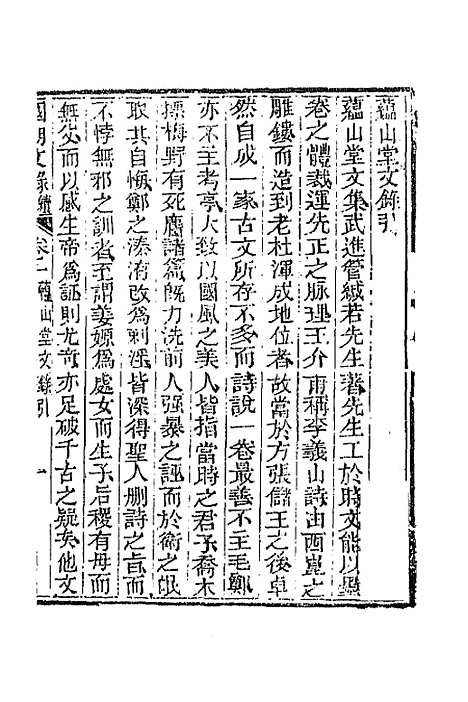 蘊山堂文錄引
蘊山堂文集武進管緘若先生著先生工於時文能以
卷之體裁運先正之脉理王介甫稱李義山詩由西崑之
雕鏤而造到老杜渾成地位者故當於方張儲王之後卓
然自成一家古文所存不多而詩說一卷最善不主毛鄭
亦不主考亭大致以國風之美人皆指當時之君子喬木
摽梅野有死麕諸篇旣力洗前人强暴之誣而於衛之氓
取其自悔鄭之溱洧改爲刺淫皆深得聖人删詩之旨而
不悖無邪之訓者至謂姜嫄爲處女而生子后稷有母而
無父而以感生帝爲誣則尤奇亦足破千古之疑矣他文
國朝文錄續 卷一 蘊山堂文錄引 一